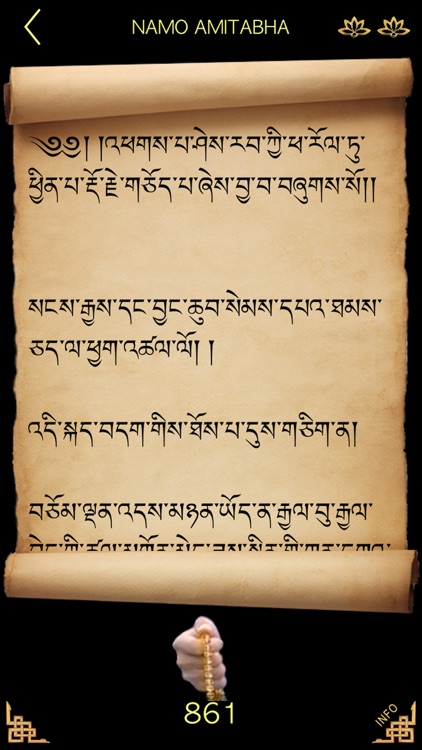 NAMO AMITABHA
༄༅། །འཕགས་པ་ཤེས་རབ་ཀྱི་ཕ་རོལ་ཏུ་
ཕྱིན་པ་རྡོ་རྗེ་གཅོད་པ་ཞེས་བྱ་བ་བཞུགས་སོ།།
སངས་རྒྱས་དང་བྱང་ཆུབ་སེམས་དཔའ་ཐམས་
ཅད་ལ་ཕྱག་འཚལ་ལོ། །
འདི་སྐད་བདག་གིས་ཐོས་པ་དུས་གཅིག་ན།
བཅོམ་ལྡན་འདས་མཉན་ཡོད་ན་རྒྱལ་བུ་རྒྱལ་
861
INFO